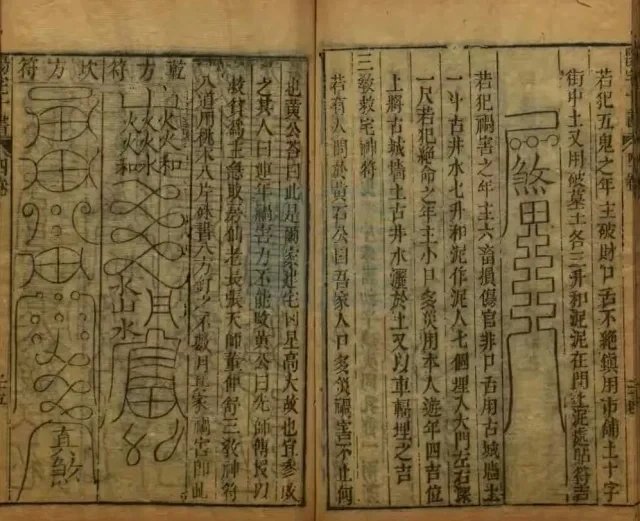 若犯五鬼之年主破財口舌不絕鎮用市鋪土十字
街中土又用破墓土各三升和泥泥在門上泥處貼符吉
煞
若犯禍害之年主六畜損傷官非口舌用古城墻土
一斗古井水七升和泥作泥人七個埋入大門左右深
一尺若犯絕命之年主小口多災用本人遊年四吉位
上將古城墻土古井水灑於土又以車輻埋之吉
三教救宅神符
若有人問於黃石公曰吾家人口多災禍害不止何
也黃公答曰此是爾家建宅凶星高大故也宜參
之其人曰連年禍害方不能散黃公曰先師傳授以
救貧為主急取於仙老長張天師董仲舒三教神符
八道用桃木八片硃書八方釘之不數月其家禍害即
乾方符
火火和
火火水
月
坎方符
水山水
直煞